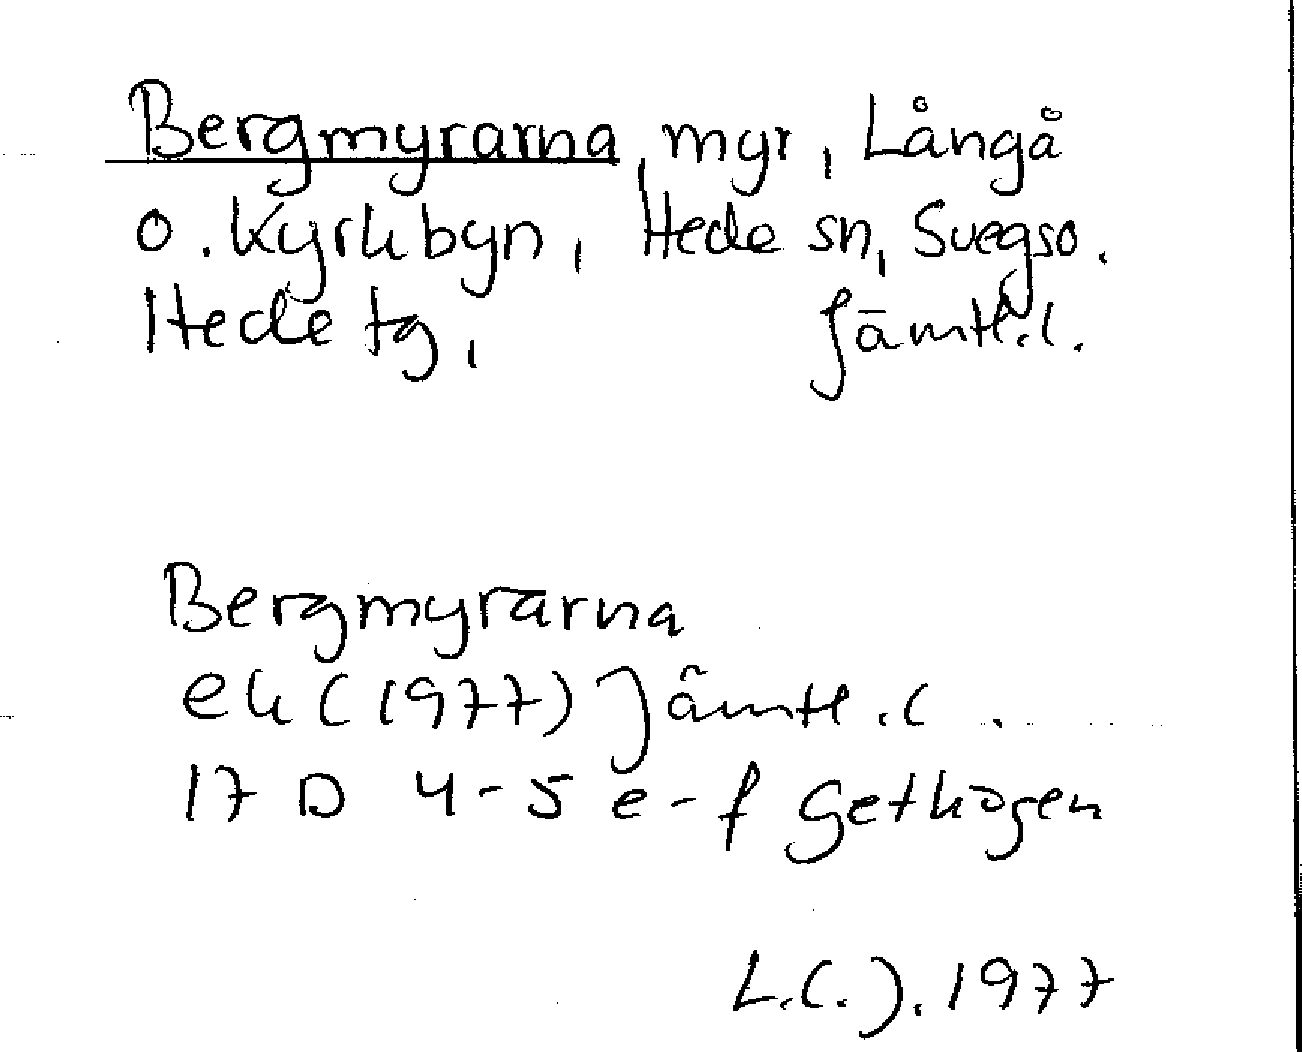 Bergmyrarna, myr, Långå
o. Kyrkbyn, Hede sn, Svegs o.
Hede tg, Jämtl.l.
Bergmyrarna
ek (1977) Jämtl.l
17 D 4-5 e-f Getkogen
L.C.J. 1977